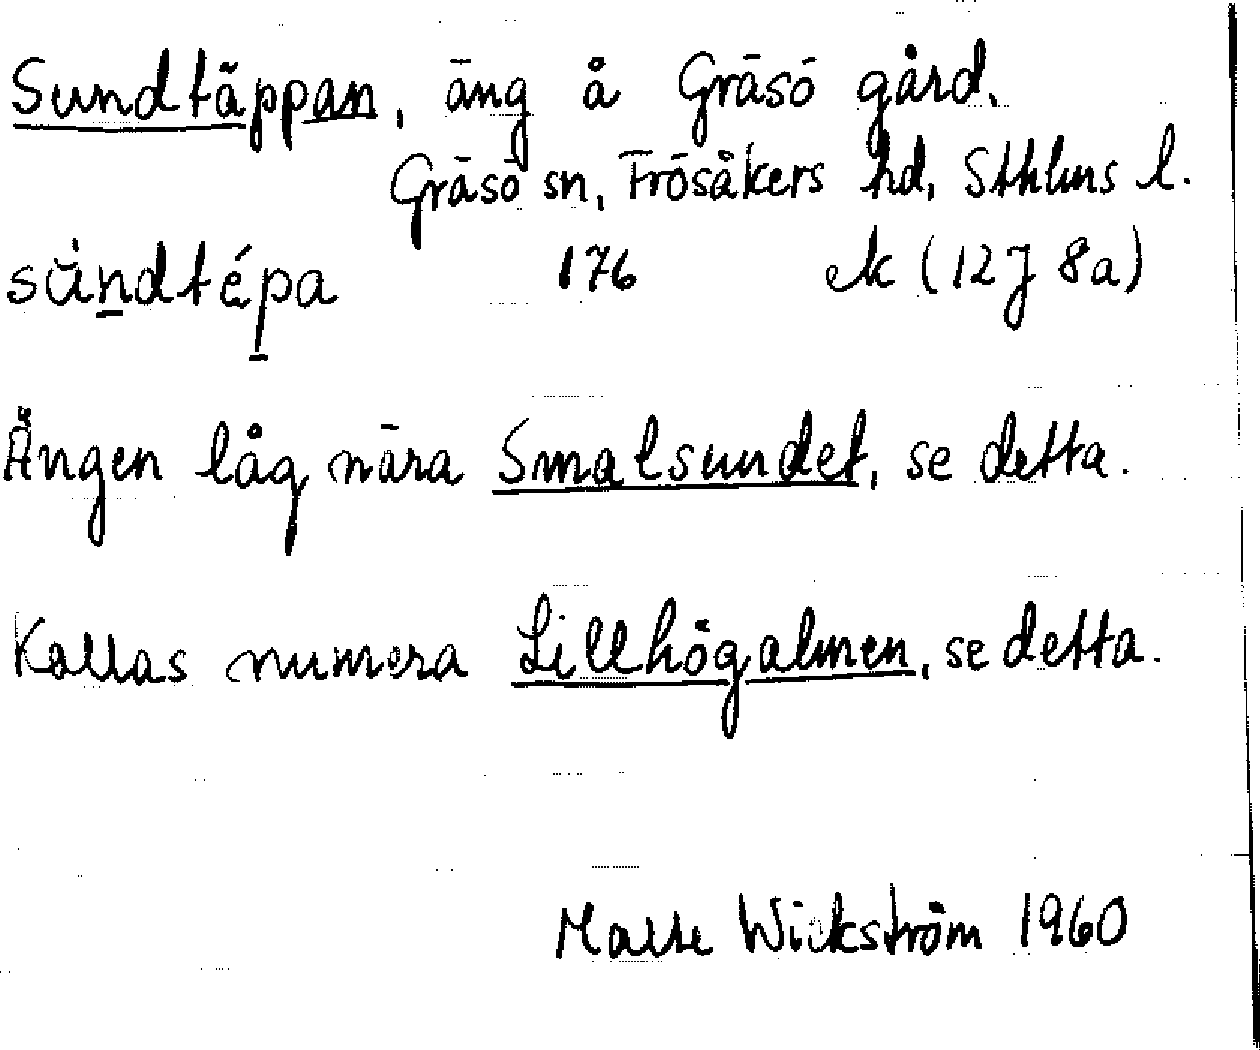 Sundtäppan, äng å Gräsö gård.
Gräsö sn, Frösåkers hd, Sthlms l.
sùndtépa 176 ek (12J 8a)
Ängen låg nära Smalsundet, se detta.
Kallas numera Lillhögalmen, se detta.
Malte Wickström 1960